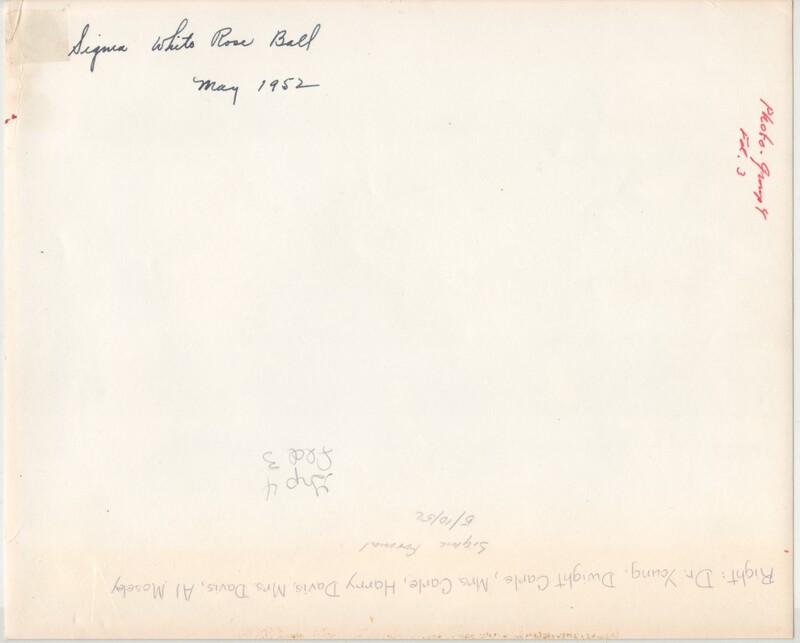 Sigma White Rose Ball
May 1952
Photo. Group 4
Fd. 3
Grp 4
fld 3
Sigma Formal
5/10/52
Right: Dr. Young, Dwight Carle, Mrs. Carle, Harry Davis, Mrs. Davis, Al Moseby